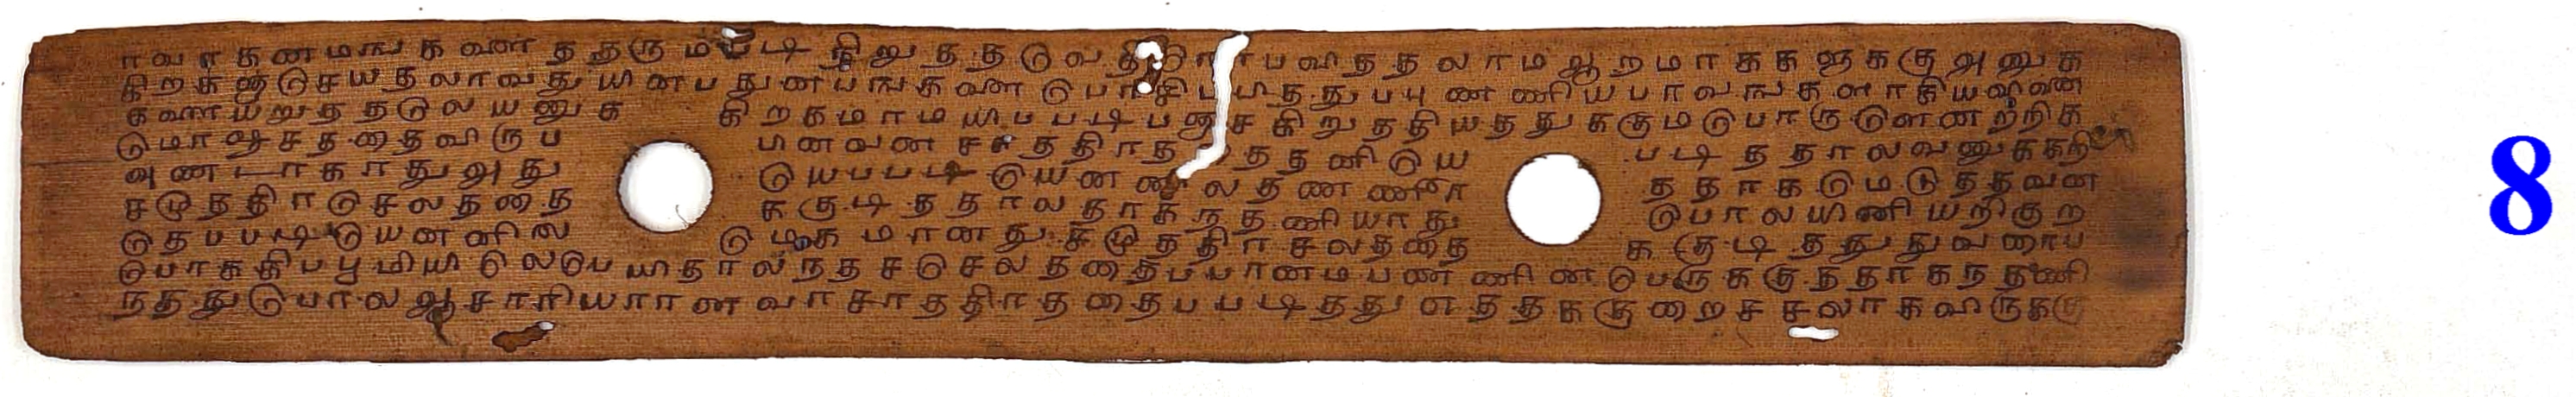 ாவாகனமஙகளைத தருமபடி நிறுதத வே பவிததலாம ஆறமாககளுககு அனுக
கிறகஞசெயதலாவது யினபதுனபஙகளை பு யத துபபுணணியபாவஙகளாகிய
களையறுதத லெயனுக கிறகமாமயிபபடி பஞசகிறுததியததுககும பொருளெனறறிக
மொஷசததைவிருப பினவன ச ததிரத ததனியெ படித தாலவனுககறி
அணடாகாது அது யெபபடி யெனன லதணணீா ததாக மெடுததவன
சமுததிர செலததை ககுடிததாலதாகநதணியாது பொலயினியறிகுற
தெபபடி யெனனில மெகமானது சமுததிர சலததை ககுடிததுதுவளைாய
பொககிபபூமியிலெபெயதாலநத ச செலததைபபானமபணணினபெருககுததாகநதணி
நததுபொல ஆசாரியரானவா சாததிரததைபபடிதது எததககுறைசசலாகவிருககு
8